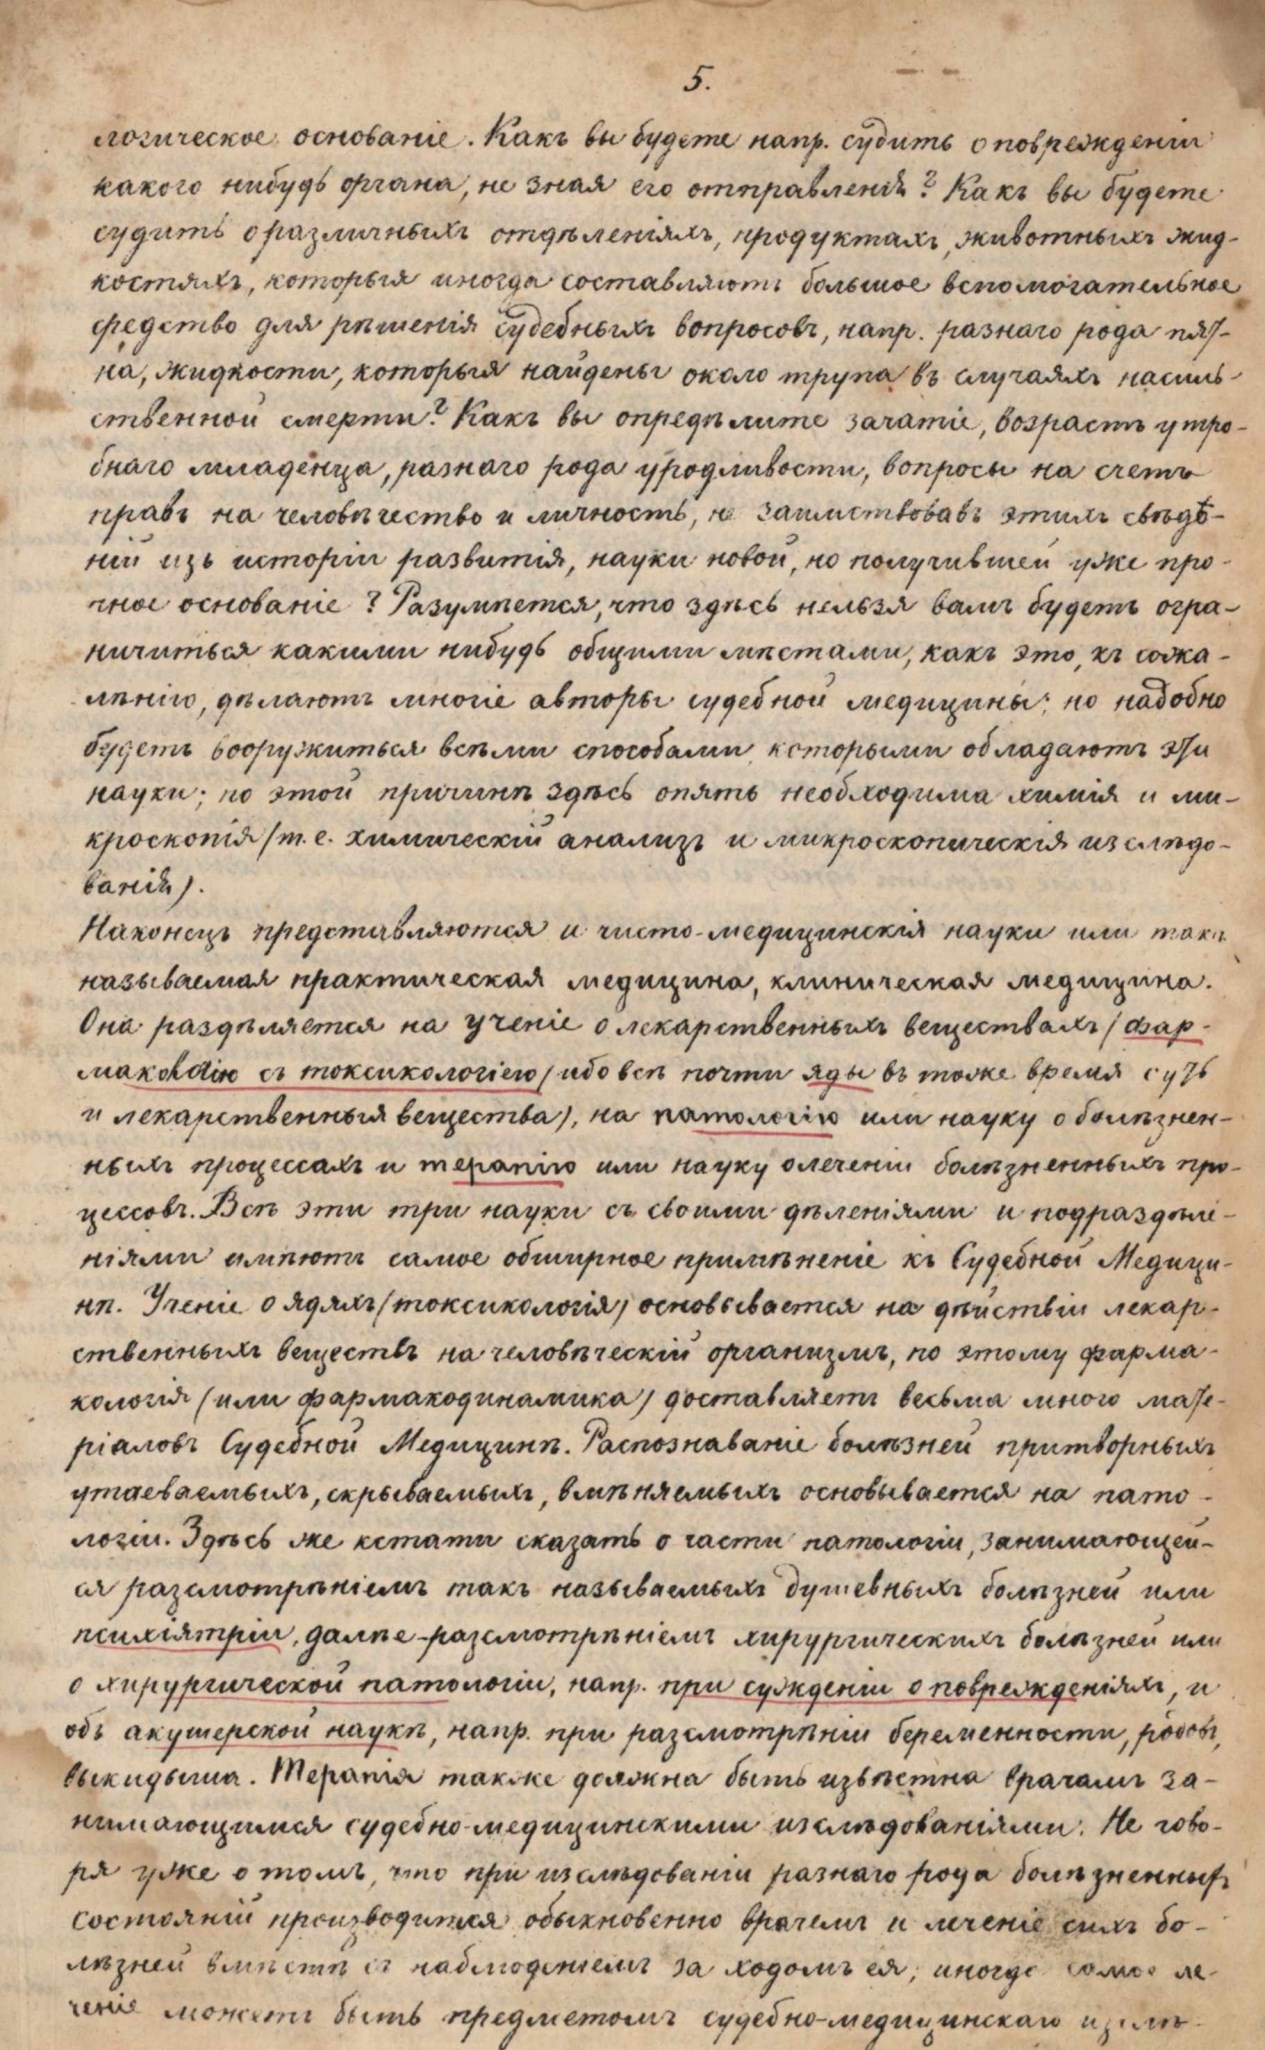 5.
логическое основаніе. Какъ вы будете напр. судить о поврежденіи
какого нибудь органа, не зная его отправленія? Какъ вы будете
судить о различныхъ отдѣленіяхъ, продуктахъ, животныхъ жид-
костяхъ, которыя иногда составляютъ большое вспомогательное
средство для рѣшенія судебныхъ вопросовъ, напр. разнаго рода пят-
на, жидкости, которыя найдены около трупа въ случаяхъ насиль-
ственной смерти? Какъ вы опредѣлите зачатіе, возрастъ утро-
бнаго младенца, разнаго рода уродливости, вопросы на счетъ
правъ на человѣчество и личность, не заимствовавъ этихъ свѣдѣ-
ній изъ исторіи развитія, науки новой, но получившей уже про-
чное основаніе? Разумѣется, что здѣсь нельзя вамъ будетъ огра-
ничиться какими нибудь общими мѣстами, какъ это, къ сожа-
лѣнію, дѣлаютъ многіе авторы судебной медицины; но надобно
будетъ вооружиться всѣми способами которыми обладаютъ эти
науки; по этой причинѣ здѣсь опять необходима химія и ми-
кроскопія (т. е. химическій анализъ и микроскопическія изслѣдо-
ванія).
Наконецъ представляются и чисто-медицинскія науки или такъ
называемая практическая медицина, клиническая медицина.
Она раздѣляется на ученіе о лекарственныхъ веществахъ (фар-
макологію съ токсикологіею (ибо всѣ почти яды въ тоже время суть
и лекарственныя вещества), на патологію или науку о болѣзнен-
ныхъ процессахъ и терапію или науку о леченіи болѣзненныхъ про-
цессовъ. Всѣ эти три науки съ своими дѣленіями и подраздѣле-
ніями имѣютъ самое обширное примѣненіе къ Судебной Медици-
нѣ. Ученіе о ядахъ (токсикологія) основывается на дѣйствіи лекар-
ственныхъ веществъ на человѣческій организмъ, по этому фарма-
кологія (или фармакодинамика) доставляетъ весьма много мате-
ріаловъ Судебной Медицинѣ. Распознаваніе болѣзней притворныхъ
утаеваемыхъ, скрываемыхъ, вмѣняемыхъ основывается на пато-
логіи. Здѣсь же кстати сказать о части патологіи, занимающей-
ся разсмотрѣніемъ такъ называемыхъ душевныхъ болѣзней или
психіятріи, далѣе-разсмотрѣніемъ хирургическихъ болѣзней или
о хирургической патологіи, напр. при сужденіи о поврежденіяхъ, и
объ акушерской наукѣ, напр. при разсмотрѣніи беременности, родовъ,
выкидыша. Терапія также должна быть извѣстна врачамъ за-
нимающимся судебно-медицинскими изслѣдованіями. Не гово-
ря уже о томъ, что при изслѣдованіи разнаго рода болѣзненныхъ
состояній производится обыкновенно врачемъ и леченіе сихъ бо-
лѣзней вмѣстѣ съ наблюденіемъ за ходомъ ея; иногда самое ле-
ченіе можетъ быть предметомъ судебно-медицинскаго изслѣ-